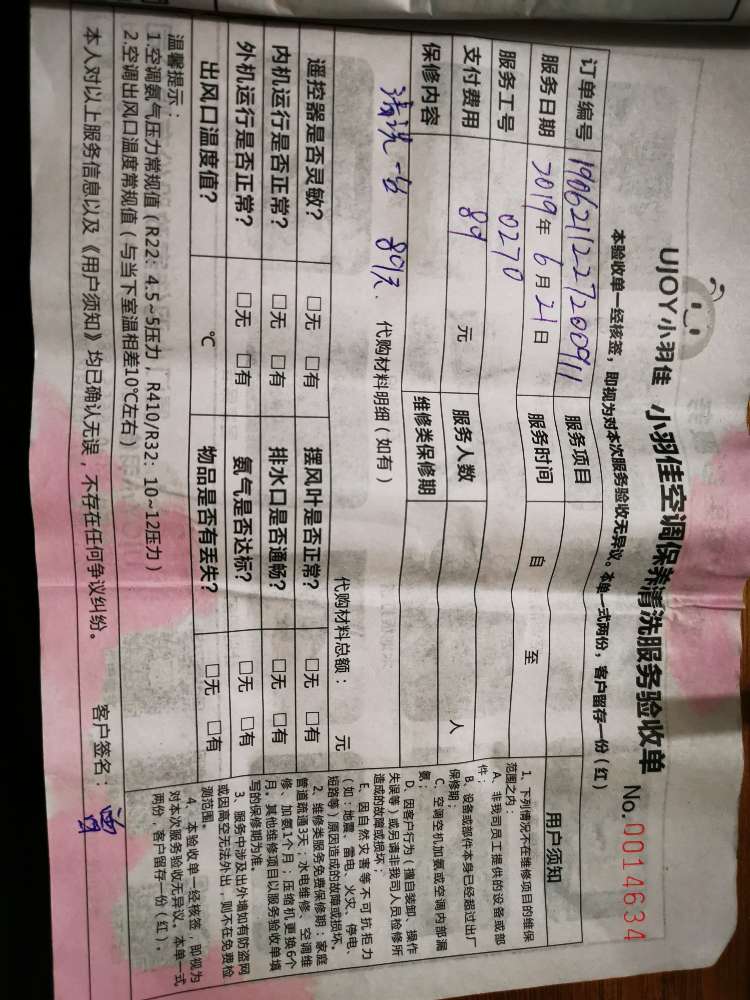 UJOY小羽佳
小羽佳空调保养清洗服务验收单
No.0014634
本验收单一经核签，即视为对本次服务验收无异议。本单一式两份，客户留存一份（红）
订单编号 190621227200911 服务项目
服务日期 2019年6月21日 服务时间 自 至
服务工号 0270
支付费用 89 元 服务人数 人
保修内容 维修类保修期
清洗一台 89元. 代购材料明细（如有）
代购材料总额： 元
遥控器是否灵敏？ □无 □有 摆风叶是否正常？ □无 □有
内机运行是否正常？ □无 □有 排水口是否通畅？ □无 □有
外机运行是否正常？ □无 □有 氨气是否达标？ □无 □有
出风口温度值？ ℃ 物品是否有丢失？ □无 □有
温馨提示：
1.空调氨气压力常规值（R22：4.5~5压力，R410/R32：10~12压力）
2.空调出风口温度常规值（与当下室温相差10℃左右）
本人对以上服务信息以及《用户须知》均已确认无误，不存在任何争议纠纷。
客户签名：
用户须知
1、下列情况不在维修项目的维保
范围之内：
A、非我司员工提供的设备或部
件；
B、设备或部件本身已经超过出厂
保修期；
C、空调空机加氨或空调内部漏
氨；
D、因客户行为（擅自装卸、操作
失误等）或另请非我司人员检修所
造成的故障或损坏；
E、因自然灾害等不可抗拒力
（如：地震、雷电、火灾、停电、
短路等）原因造成的故障或损坏。
2、维修类服务免费保修期：家庭
管道疏通3天；水电维修、空调维
修、加氨1个月；压缩机更换6个
月。其他维修项目以服务验收单填
写的保修期为准。
3、服务中涉及出外墙如有防盗网
或因高空无法外出，则不在免费检
测范围。
4、本验收单一经核签，即视为
对本次服务验收无异议。本单一式
两份，客户留存一份（红）。